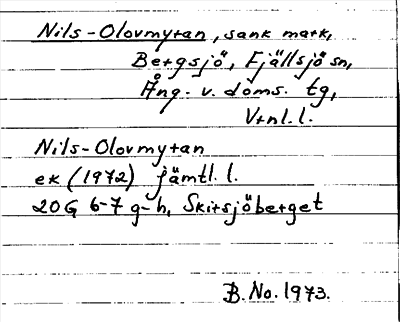 Nils-Olovmyran, sank mark,
Bergsjö, Fjällsjö sn,
Ång. v. doms. tg,
Vrnl. l.
Nils-Olovmyran
ek (1972) Jämtl. l.
20G 6-7 g-h, Skirsjöberget
B. No. 1973.